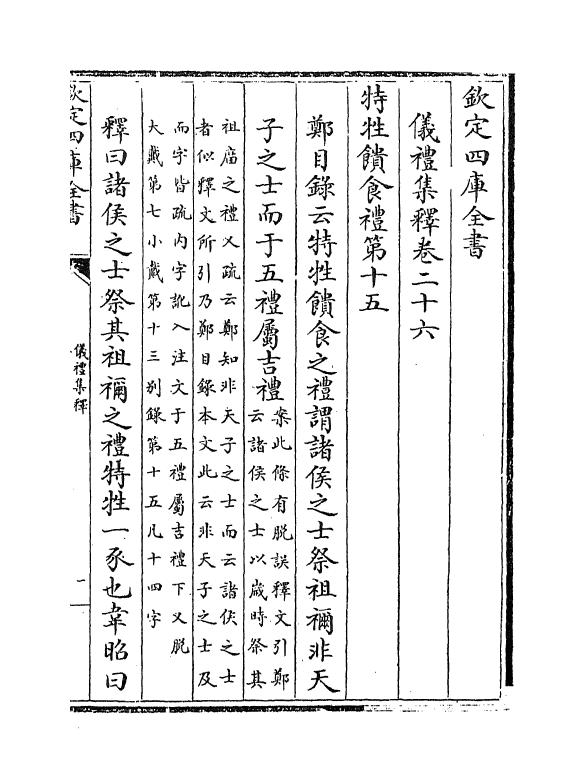 欽定四庫全書
儀禮集釋卷二十六
特牲饋食禮第十五
鄭目錄云特牲饋食之禮謂諸侯之士祭祖禰非天
子之士而于五禮屬吉禮
案此條有脱誤釋文引鄭
云諸侯之士以嵗時祭其
祖廟之禮又疏云鄭知非天子之士而云諸侯之士
者似釋文所引乃鄭目錄本文此云非天子之士及
而字皆疏内字訛入注文于五禮屬吉禮下又脱
大戴第七小戴第十三别錄第十五凡十四字
釋曰諸侯之士祭其祖禰之禮特牲一豕也韋昭曰
欽定四庫全書
儀禮集釋
一